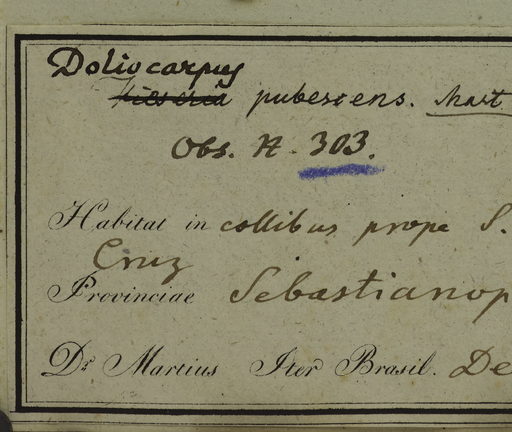 Doliocarpus
pubescens. Mart
Obs. N. 303.
Habitat in collibus prope S.
Cruz
Provinciae Sebastianop
Dr Martius Iter Brasil. De